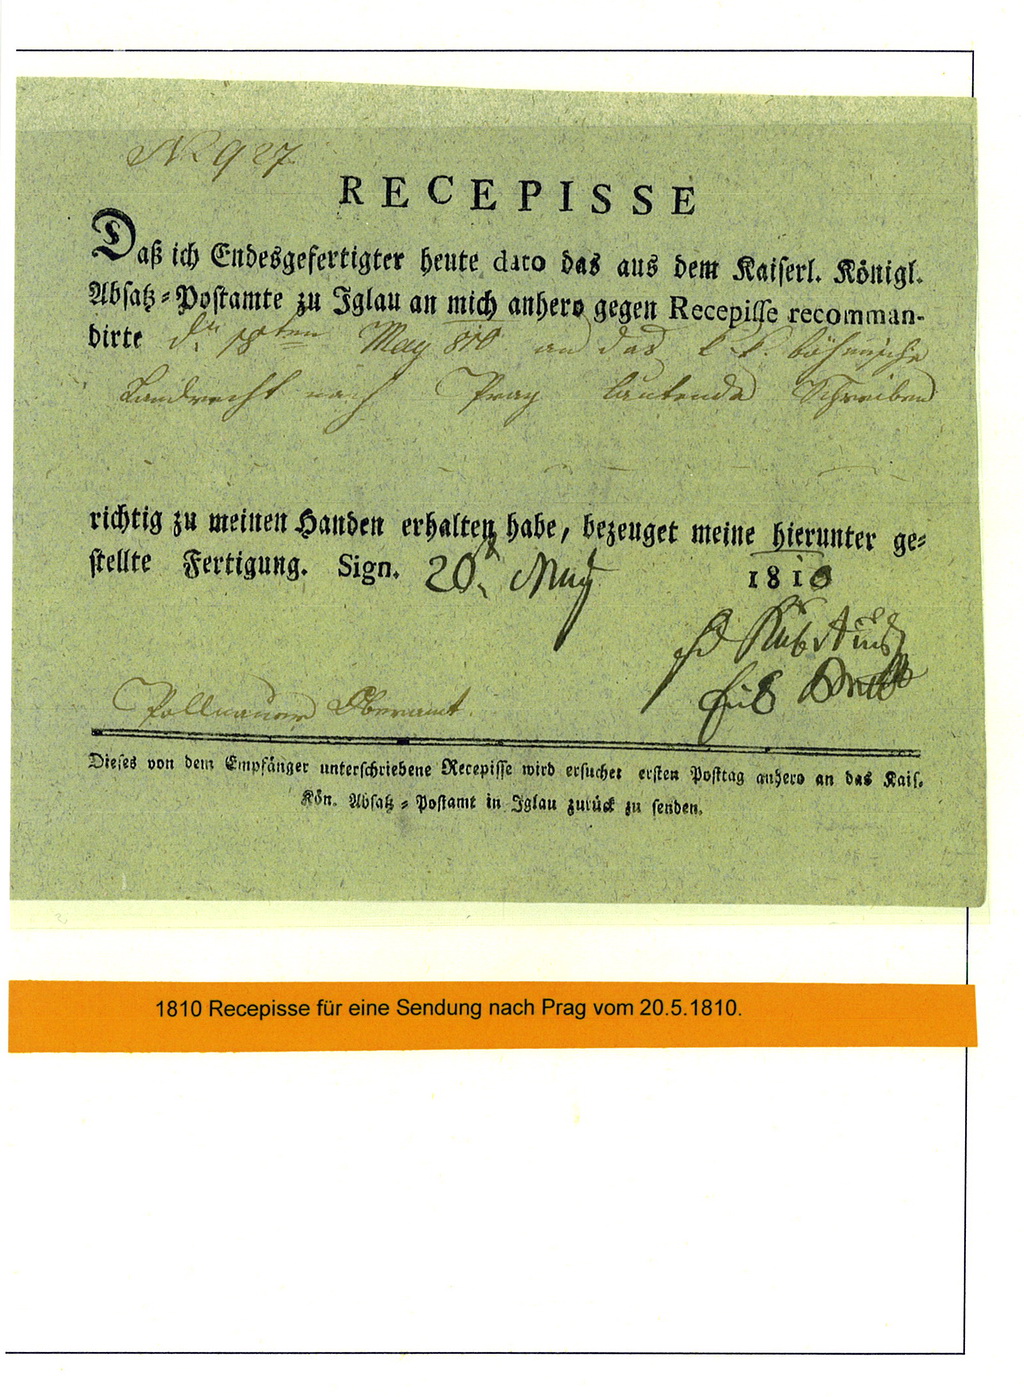 No 927
RECEPISSE
Daß ich Endesgefertigter heute dato das aus dem Kaiserl. Königl.
Absatz-Postamte zu Iglau an mich anhero gegen Recepisse recomman-
dirte d. 18ten May 810 an das k. k. böhmische
Landrecht nach Prag lautende Schreiben
richtig zu meinen Handen erhalten habe, bezeuget meine hierunter ge-
stellte Fertigung. Sign. 20. May 1810
Pollnauer Oberamt
Dieses von dem Empfänger unterschriebene Recepisse wird ersuchet ersten Posttag anhero an das Kais.
Kön. Absatz-Postamt in Iglau zurück zu senden.
1810 Recepisse für eine Sendung nach Prag vom 20.5.1810.